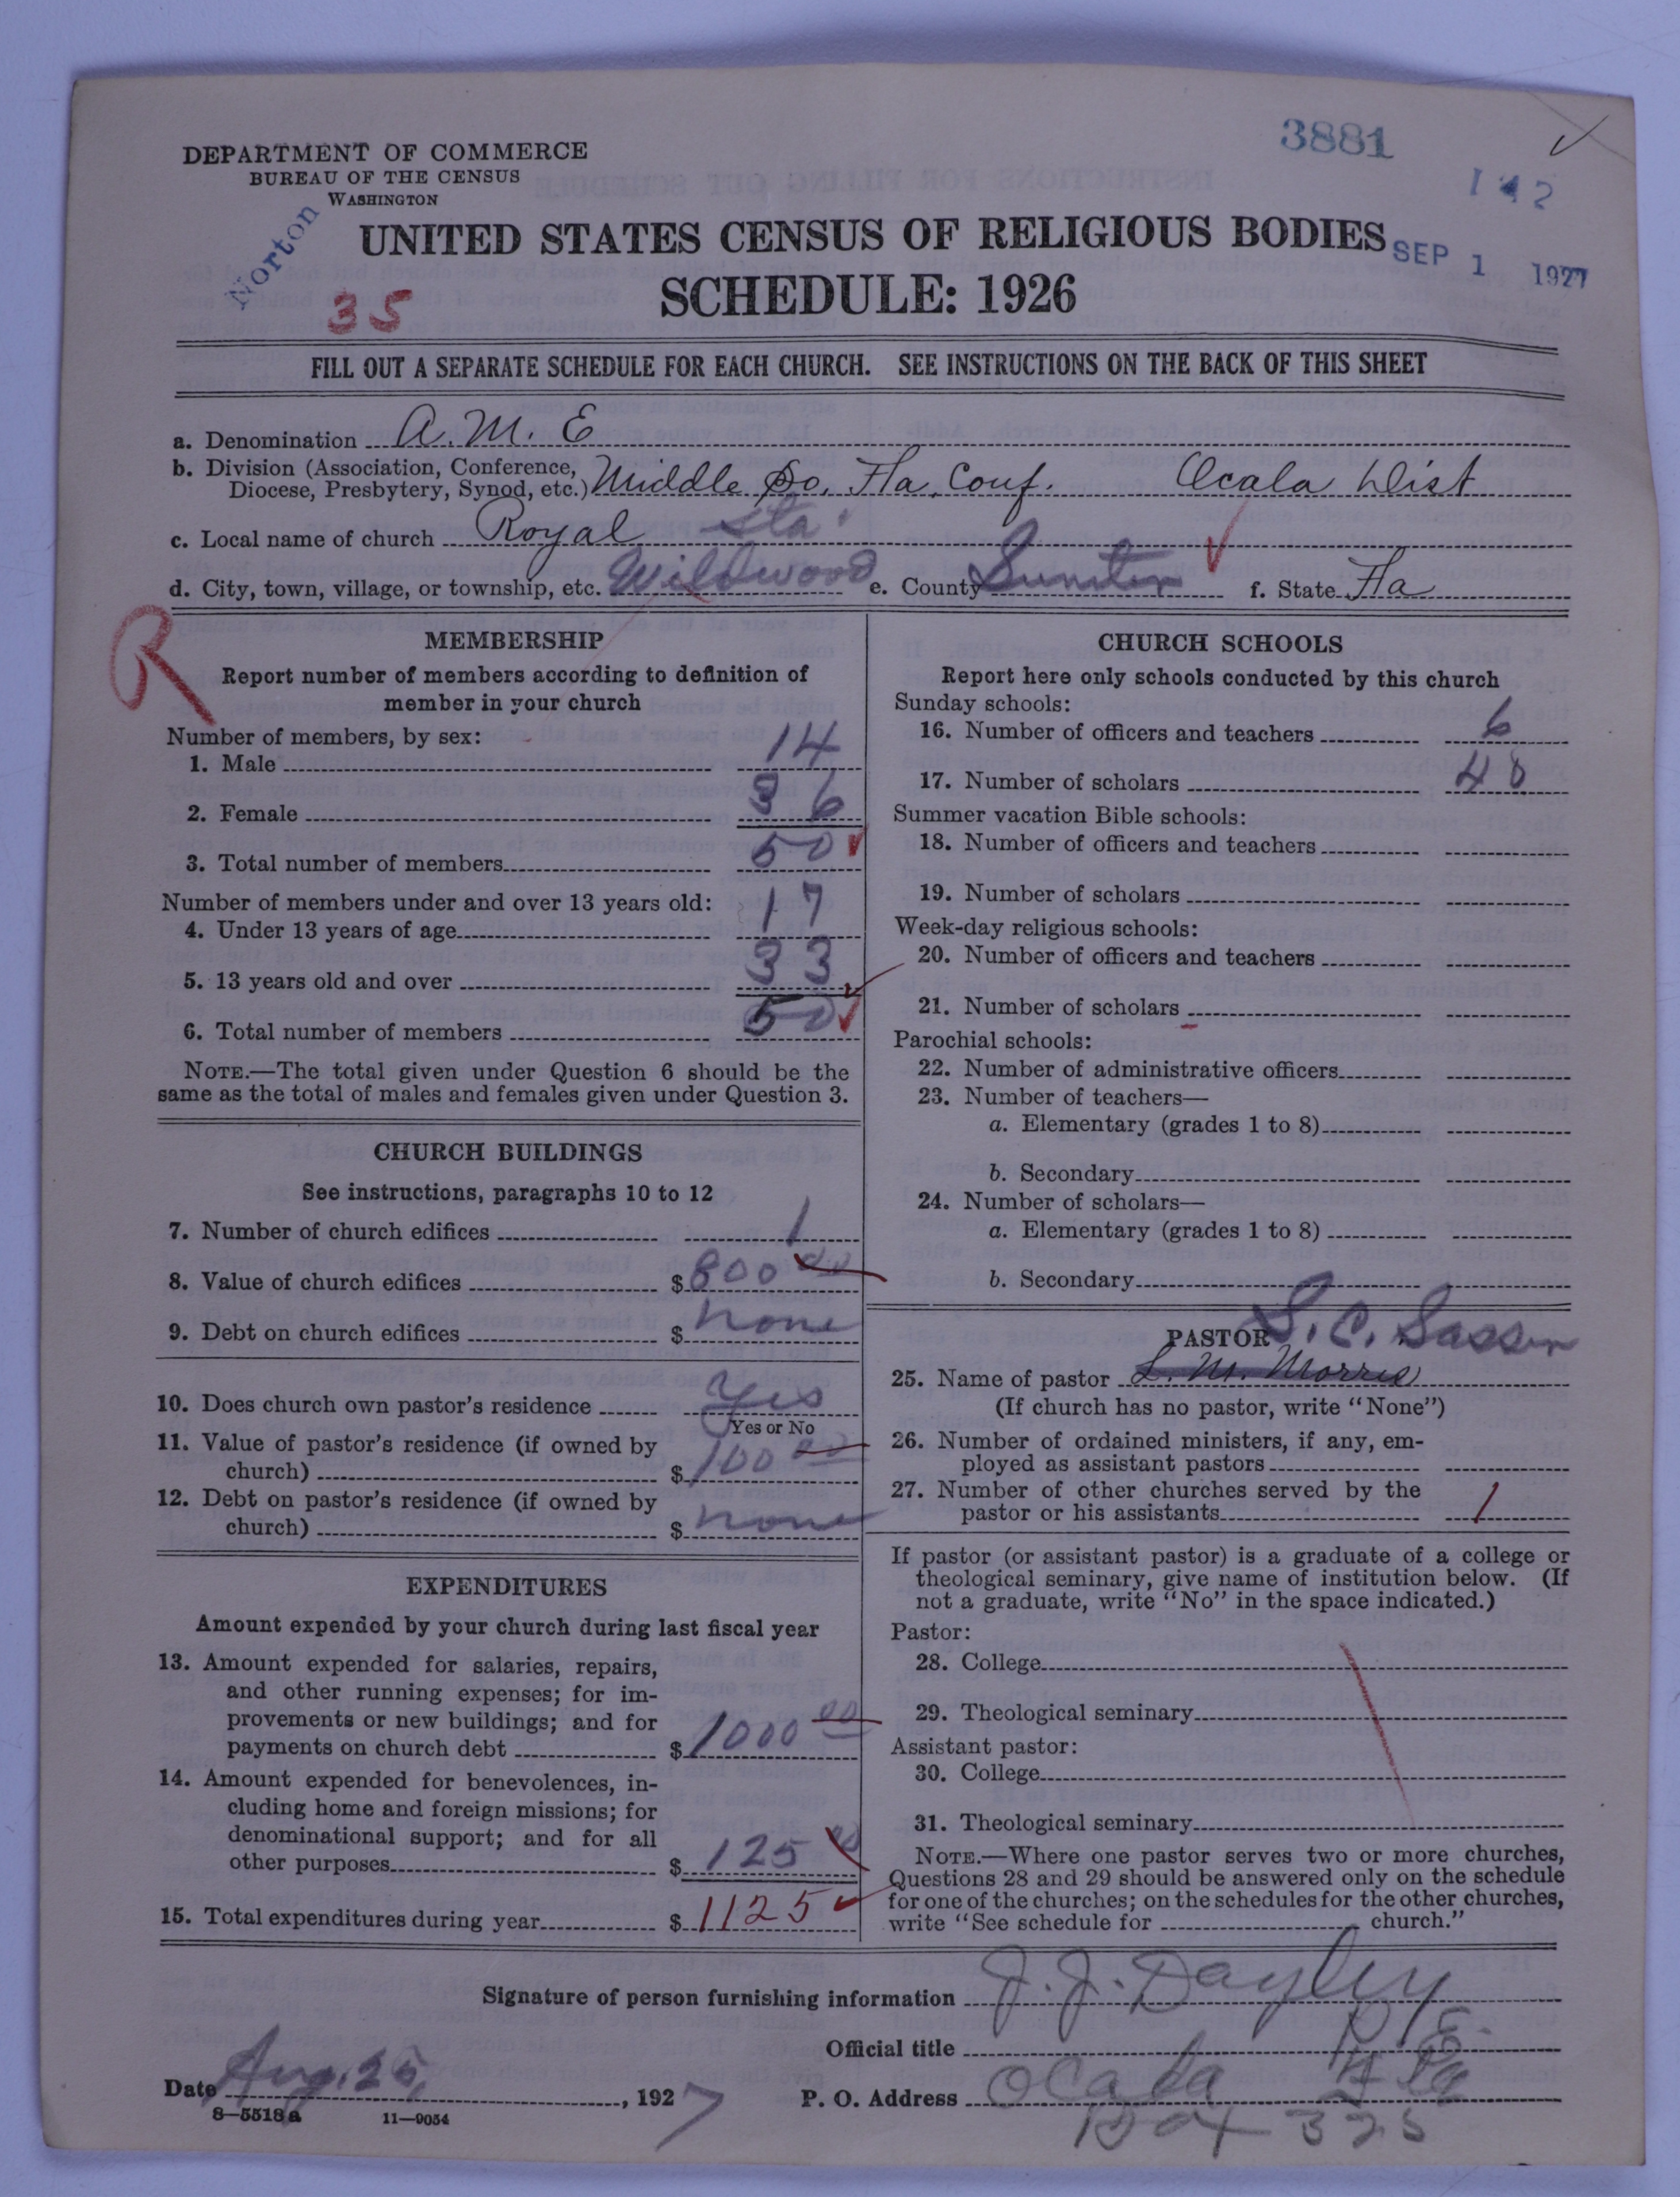 3881
142
DEPARTMENT OF COMMERCE
BUREAU OF THE CENSUS
WASHINGTON
Norton
35
UNITED STATES CENSUS OF RELIGIOUS BODIES
SEP 1 1927
SCHEDULE: 1926
FILL OUT A SEPARATE SCHEDULE FOR EACH CHURCH. SEE INSTRUCTIONS ON THE BACK OF THIS SHEET
a. Denomination A. M. E
b. Division (Association, Conference,
Diocese, Presbytery, Synod, etc.) Middle So. Fla. Conf. Ocala Dist
c. Local name of church Royal Sta.
d. City, town, village, or township, etc. Wildwood e. County Sumter f. State Fla
R
MEMBERSHIP
Report number of members according to definition of
member in your church
Number of members, by sex:
1. Male 14
2. Female 36
3. Total number of members 50
Number of members under and over 13 years old:
4. Under 13 years of age 17
5. 13 years old and over 33
6. Total number of members 50
NOTE.—The total given under Question 6 should be the
same as the total of males and females given under Question 3.
CHURCH BUILDINGS
See instructions, paragraphs 10 to 12
7. Number of church edifices 1
8. Value of church edifices $ 800 00
9. Debt on church edifices $ none
10. Does church own pastor's residence Yes
Yes or No
11. Value of pastor's residence (if owned by
church) $ 100 00
12. Debt on pastor's residence (if owned by
church) $ none
EXPENDITURES
Amount expended by your church during last fiscal year
13. Amount expended for salaries, repairs,
and other running expenses; for im-
provements or new buildings; and for
payments on church debt $ 1000 00
14. Amount expended for benevolences, in-
cluding home and foreign missions; for
denominational support; and for all
other purposes $ 125 00
15. Total expenditures during year $ 1125
CHURCH SCHOOLS
Report here only schools conducted by this church
Sunday schools:
16. Number of officers and teachers 6
17. Number of scholars 40
Summer vacation Bible schools:
18. Number of officers and teachers
19. Number of scholars
Week-day religious schools:
20. Number of officers and teachers
21. Number of scholars
Parochial schools:
22. Number of administrative officers
23. Number of teachers—
a. Elementary (grades 1 to 8)
b. Secondary
24. Number of scholars—
a. Elementary (grades 1 to 8)
b. Secondary
PASTOR S. C. Sasser
25. Name of pastor L. M. Morris
(If church has no pastor, write "None")
26. Number of ordained ministers, if any, em-
ployed as assistant pastors
27. Number of other churches served by the
pastor or his assistants 1
If pastor (or assistant pastor) is a graduate of a college or
theological seminary, give name of institution below. (If
not a graduate, write "No" in the space indicated.)
Pastor:
28. College
29. Theological seminary
Assistant pastor:
30. College
31. Theological seminary
NOTE.—Where one pastor serves two or more churches,
Questions 28 and 29 should be answered only on the schedule
for one of the churches; on the schedules for the other churches,
write "See schedule for church."
Signature of person furnishing information J. J. Dayley
Official title P. E.
Date Aug. 25, 1927 P. O. Address Ocala Fla
Box 325
8—5518a 11—9054